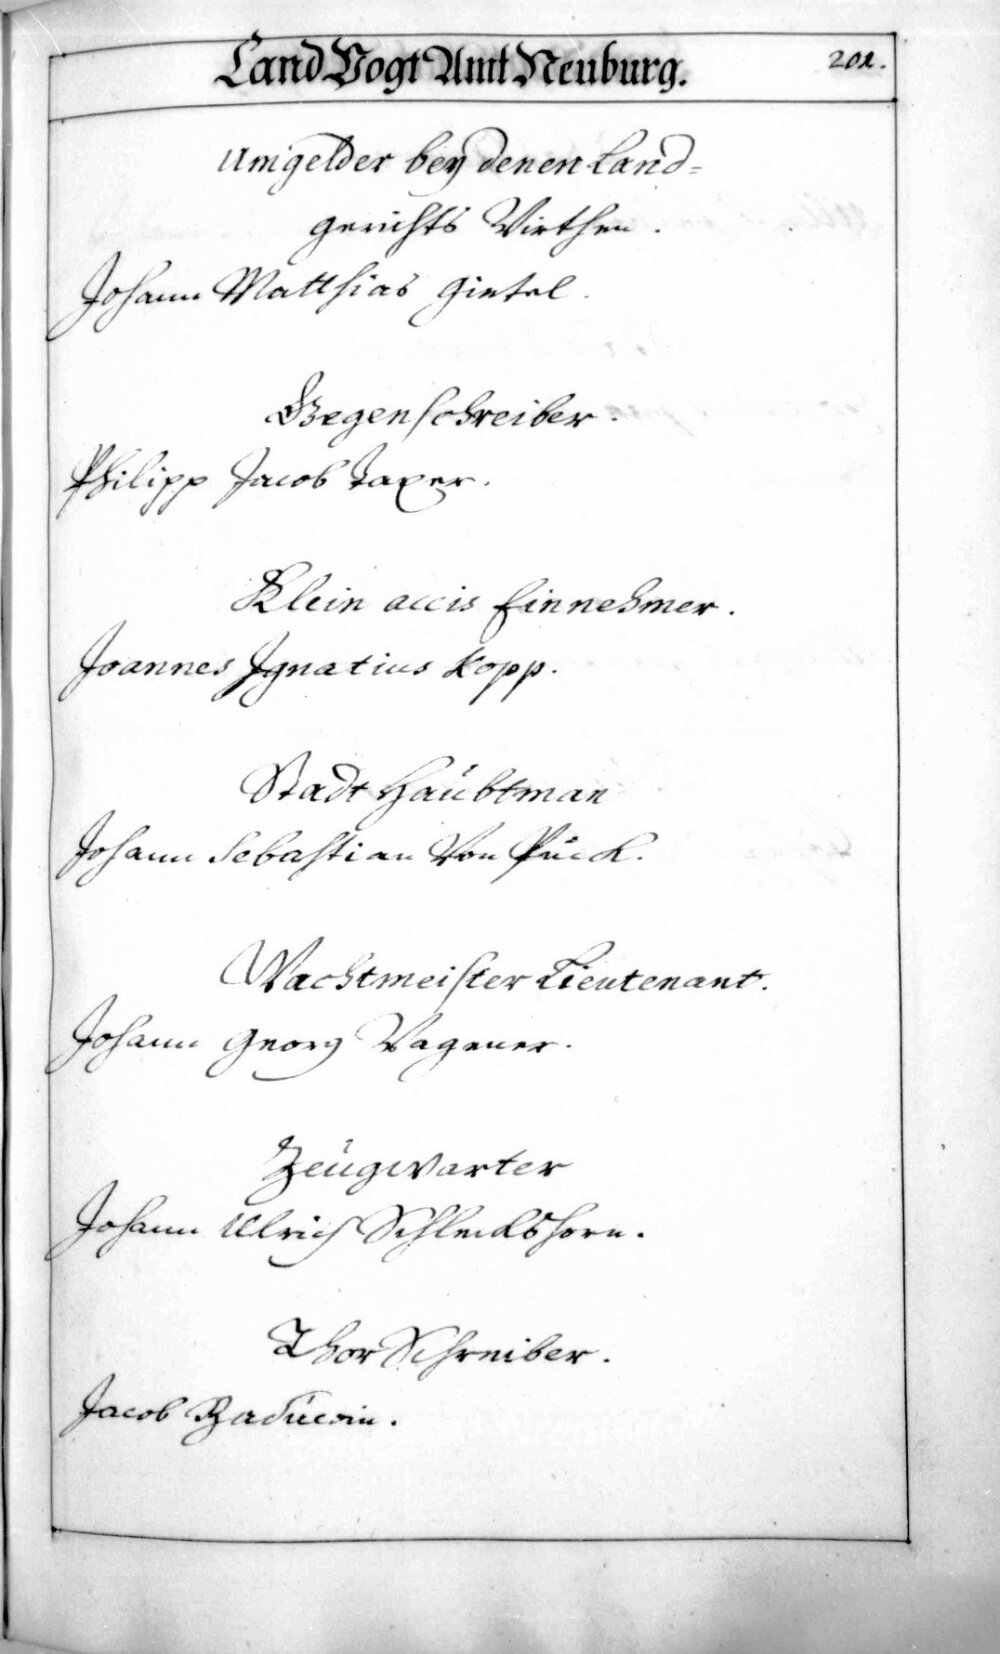 Land Vogt Amt Neuburg.
201.
Umgelder bey denen Land=
gerichts Wirthen.
Johann Matthias Gietel.
Gegenschreiber.
Philipp Jacob Taxer.
Klein accis Einnehmer.
Joannes Ignatius Kopp.
Stadt Haubtman
Johann Sebastian Von Pück.
Wachtmeister Lieutenant.
Johann Georg Wagener.
Zeugwarter
Johann Ulrich Schleckshorn.
Thor Schreiber.
Jacob